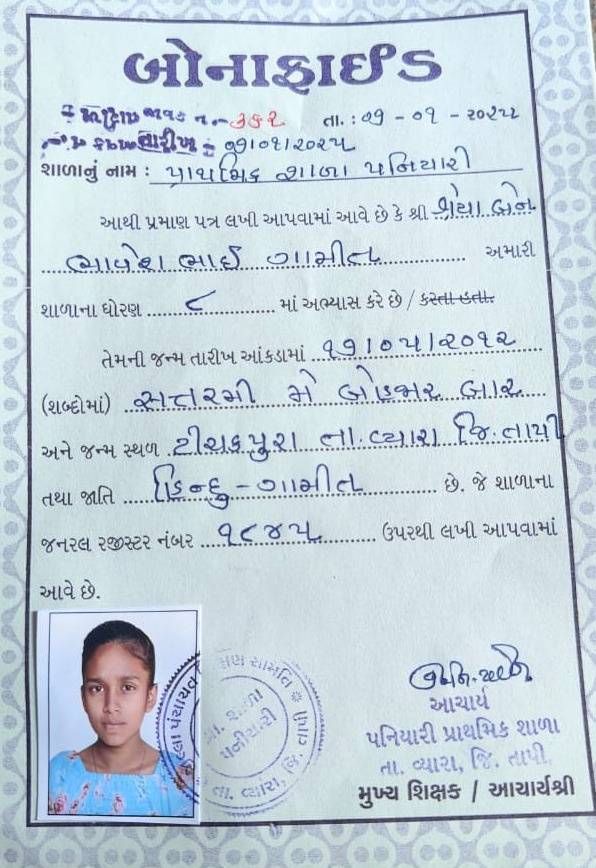 બોનાફાઈડ
જાવક નં.- ૩૬૨ તા. : ૦૧ - ૦૧ - ૨૦૨૫
તારીખ :- ૦૧/૦૧/૨૦૨૫
શાળાનું નામ : પ્રાથમિક શાળા પનિયારી
આથી પ્રમાણ પત્ર લખી આપવામાં આવે છે કે શ્રી શ્રેયા બેન
ભાવેશ ભાઈ ગામીત અમારી
શાળાના ધોરણ ૮ માં અભ્યાસ કરે છે / કરતા હતા.
તેમની જન્મ તારીખ આંકડામાં ૧૭/૦૫/૨૦૧૨
(શબ્દોમાં) સત્તરમી મે બેહજાર બાર
અને જન્મ સ્થળ ટીચકપુરા તા. વ્યારા જિ. તાપી
તથા જાતિ હિન્દુ - ગામીત છે. જે શાળાના
જનરલ રજીસ્ટર નંબર ૧૮૪૫ ઉપરથી લખી આપવામાં
આવે છે.
આચાર્ય
પનિયારી પ્રાથમિક શાળા
તા. વ્યારા, જિ. તાપી.
મુખ્ય શિક્ષક / આચાર્યશ્રી